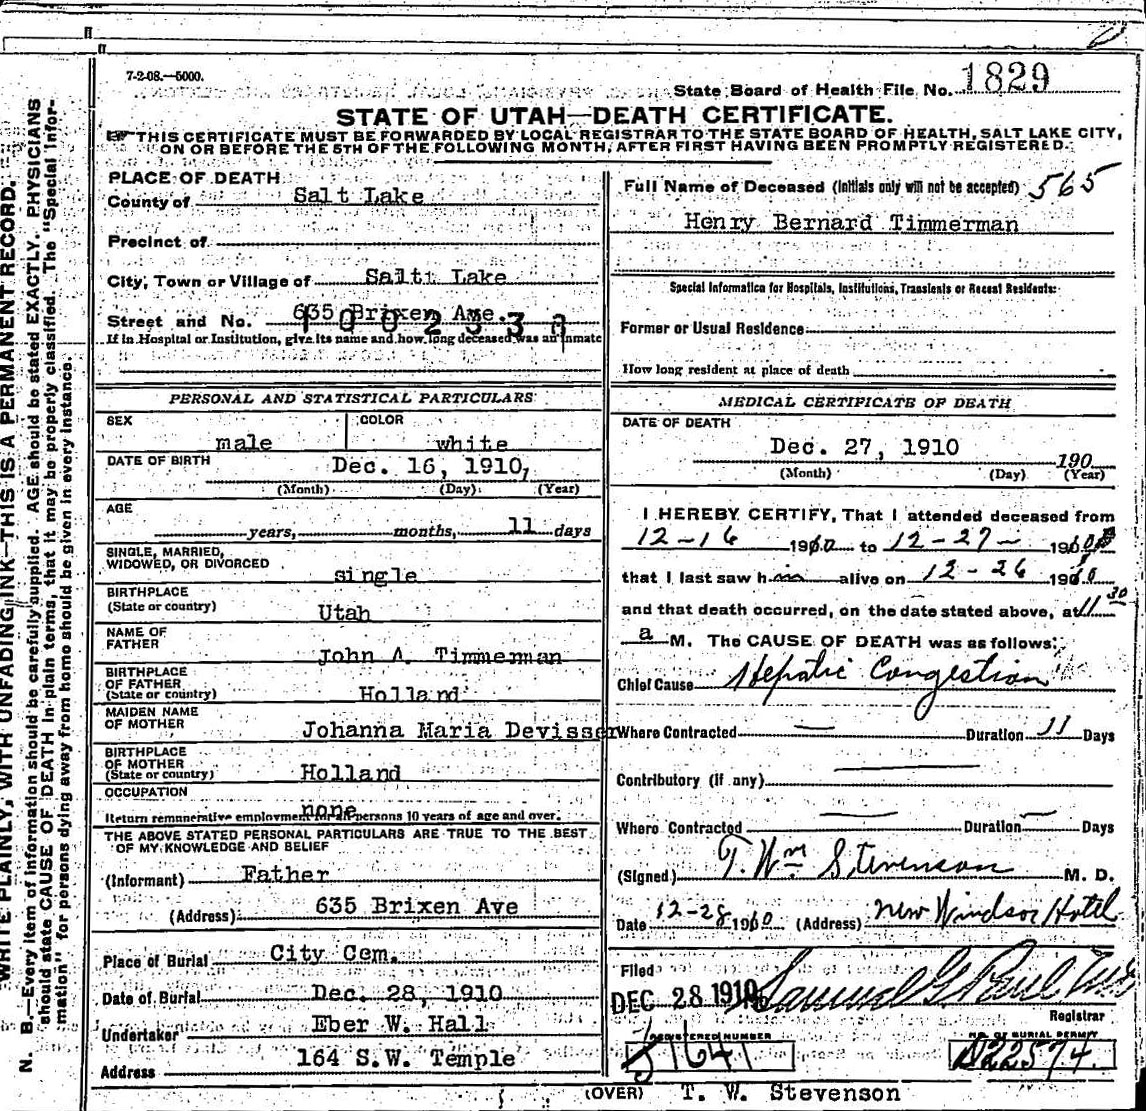 7-2-08.—5000.
State Board of Health File No. 1829
STATE OF UTAH—DEATH CERTIFICATE.
THIS CERTIFICATE MUST BE FORWARDED BY LOCAL REGISTRAR TO THE STATE BOARD OF HEALTH, SALT LAKE CITY,
ON OR BEFORE THE 5TH OF THE FOLLOWING MONTH, AFTER FIRST HAVING BEEN PROMPTLY REGISTERED.
WRITE PLAINLY, WITH UNFADING INK—THIS IS A PERMANENT RECORD.
N. B.—Every item of information should be carefully supplied. AGE should be stated EXACTLY. PHYSICIANS
should state CAUSE OF DEATH in plain terms, that it may be properly classified. The "Special Infor-
mation" for persons dying away from home should be given in every instance.
PLACE OF DEATH
County of Salt Lake
Precinct of
City, Town or Village of Salt Lake
Street and No. 635 Brixen Ave.
If in Hospital or Institution, give its name and how long deceased was an inmate
PERSONAL AND STATISTICAL PARTICULARS
SEX COLOR
male white
DATE OF BIRTH Dec. 16, 1910,
(Month) (Day) (Year)
AGE
years, months, 11 days
SINGLE, MARRIED,
WIDOWED, OR DIVORCED single
BIRTHPLACE
(State or country) Utah
NAME OF
FATHER John A. Timmerman
BIRTHPLACE
OF FATHER
(State or country) Holland
MAIDEN NAME
OF MOTHER Johanna Maria Devisser
BIRTHPLACE
OF MOTHER
(State or country) Holland
OCCUPATION
none
Return remunerative employment for all persons 10 years of age and over.
THE ABOVE STATED PERSONAL PARTICULARS ARE TRUE TO THE BEST
OF MY KNOWLEDGE AND BELIEF
(Informant) Father
(Address) 635 Brixen Ave
Place of Burial City Cem.
Date of Burial Dec. 28, 1910
Undertaker Eber W. Hall
Address 164 S.W. Temple
Full Name of Deceased (Initials only will not be accepted) 565
Henry Bernard Timmerman
Special Information for Hospitals, Institutions, Transients or Recent Residents:
Former or Usual Residence
How long resident at place of death
MEDICAL CERTIFICATE OF DEATH
DATE OF DEATH
Dec. 27, 1910 190
(Month) (Day) (Year)
I HEREBY CERTIFY, That I attended deceased from
12-16 1910 to 12-27- 1910
that I last saw him alive on 12-26 1910
and that death occurred, on the date stated above, at 11 30
a M. The CAUSE OF DEATH was as follows:
Chief Cause Hepatic Congestion
Where Contracted — Duration 11 Days
Contributory (if any) —
Where Contracted — Duration — Days
(Signed) T. Wm Stevenson M. D.
Date 12-28 1910 (Address) New Windsor Hotel
Filed
DEC 28 1910 Samuel G. Paul
Registrar
REGISTERED NUMBER NO. OF BURIAL PERMIT
1641 D22574.
(OVER) T. W. Stevenson